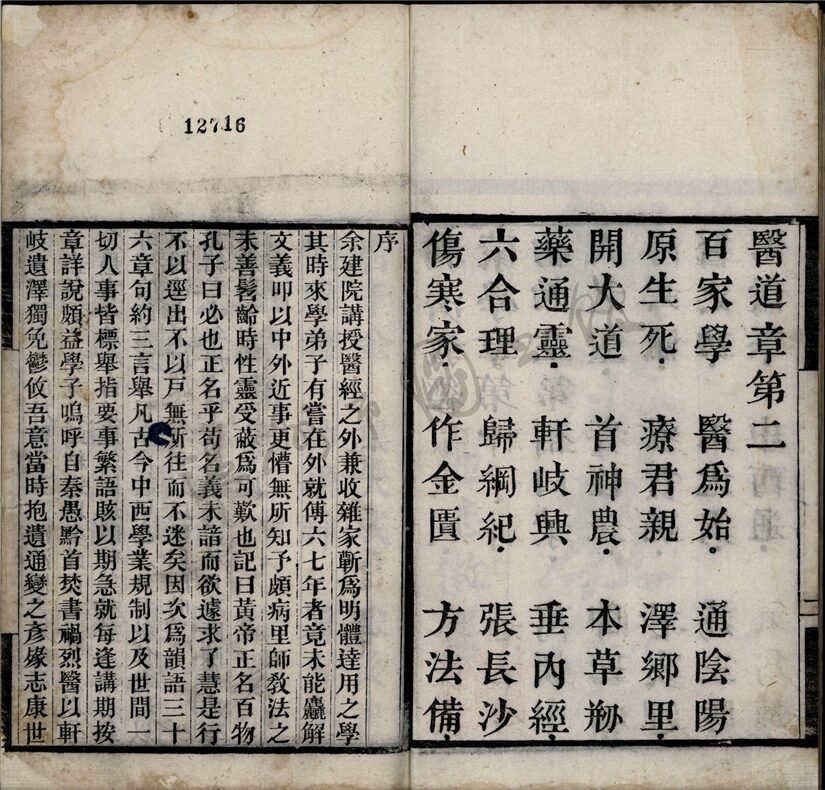 12716
醫道章第二
百家學 醫爲始 通陰陽
原生死 療君親 澤鄉里
開大道 首神農 本草剏
藥通靈 軒岐興 垂內經
六合理 歸綱紀 張長沙
傷寒家 作金匱 方法備
二
序
余建院講授醫經之外兼收雜家蘄爲明體達用之學
其時來學弟子有嘗在外就傅六七年者竟未能麤解
文義叩以中外近事更懵無所知予頗病里師教法之
未善髫齡時性靈受蔽爲可歎也記曰黃帝正名百物
孔子曰必也正名乎苟名義未諳而欲遽求了慧是行
不以逕出不以戶無所往而不迷矣因次爲韻語三十
六章句約三言舉凡古今中西學業規制以及世間一
切人事皆標舉指要事繁語賅以期急就每逢講期按
章詳說頗益學子嗚呼自秦愚黔首焚書禍烈醫以軒
岐遺澤獨免鬱攸吾意當時抱遺通變之彥緣志康世